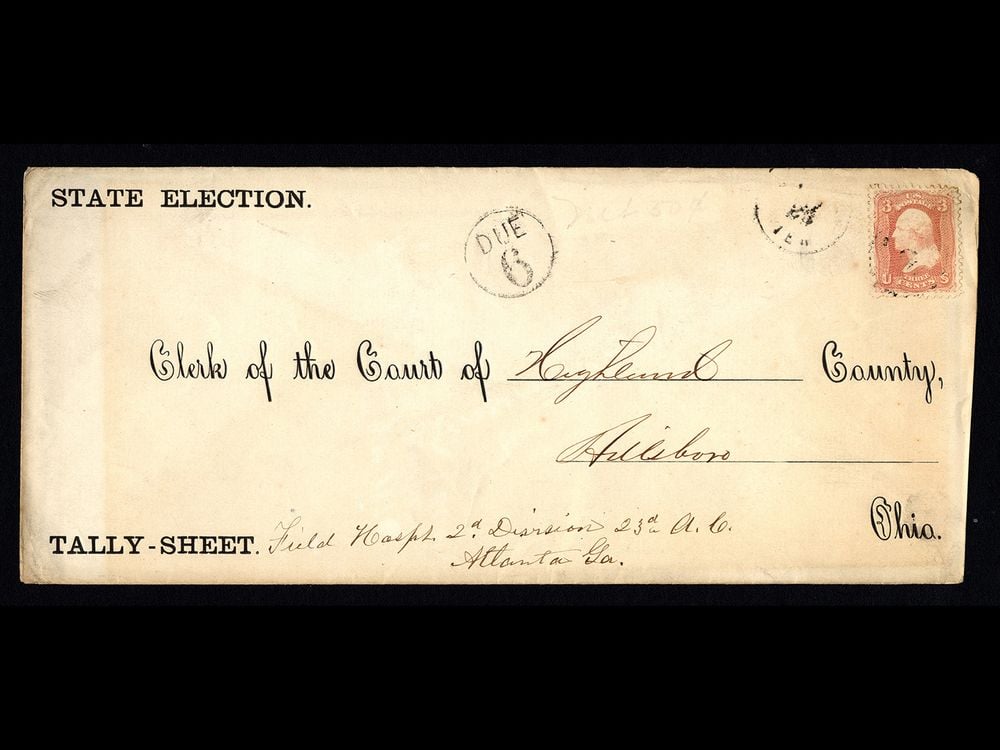 STATE ELECTION.
DUE
6
3 3
U.S.
POSTAGE
U S
THREE
CENTS
Clerk of the Court of Highland County,
Hillsboro
Ohio.
TALLY-SHEET. Field Hospt. 2d Division 23d A. C.
Atlanta Ga.